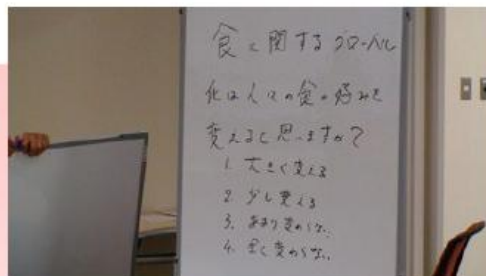 食に関するグローバル
化は人々の食の好みを
変えると思いますか?
1. 大きく変える
2. 少し変える
3. あまり変わらない.
4. 全く変わらない.